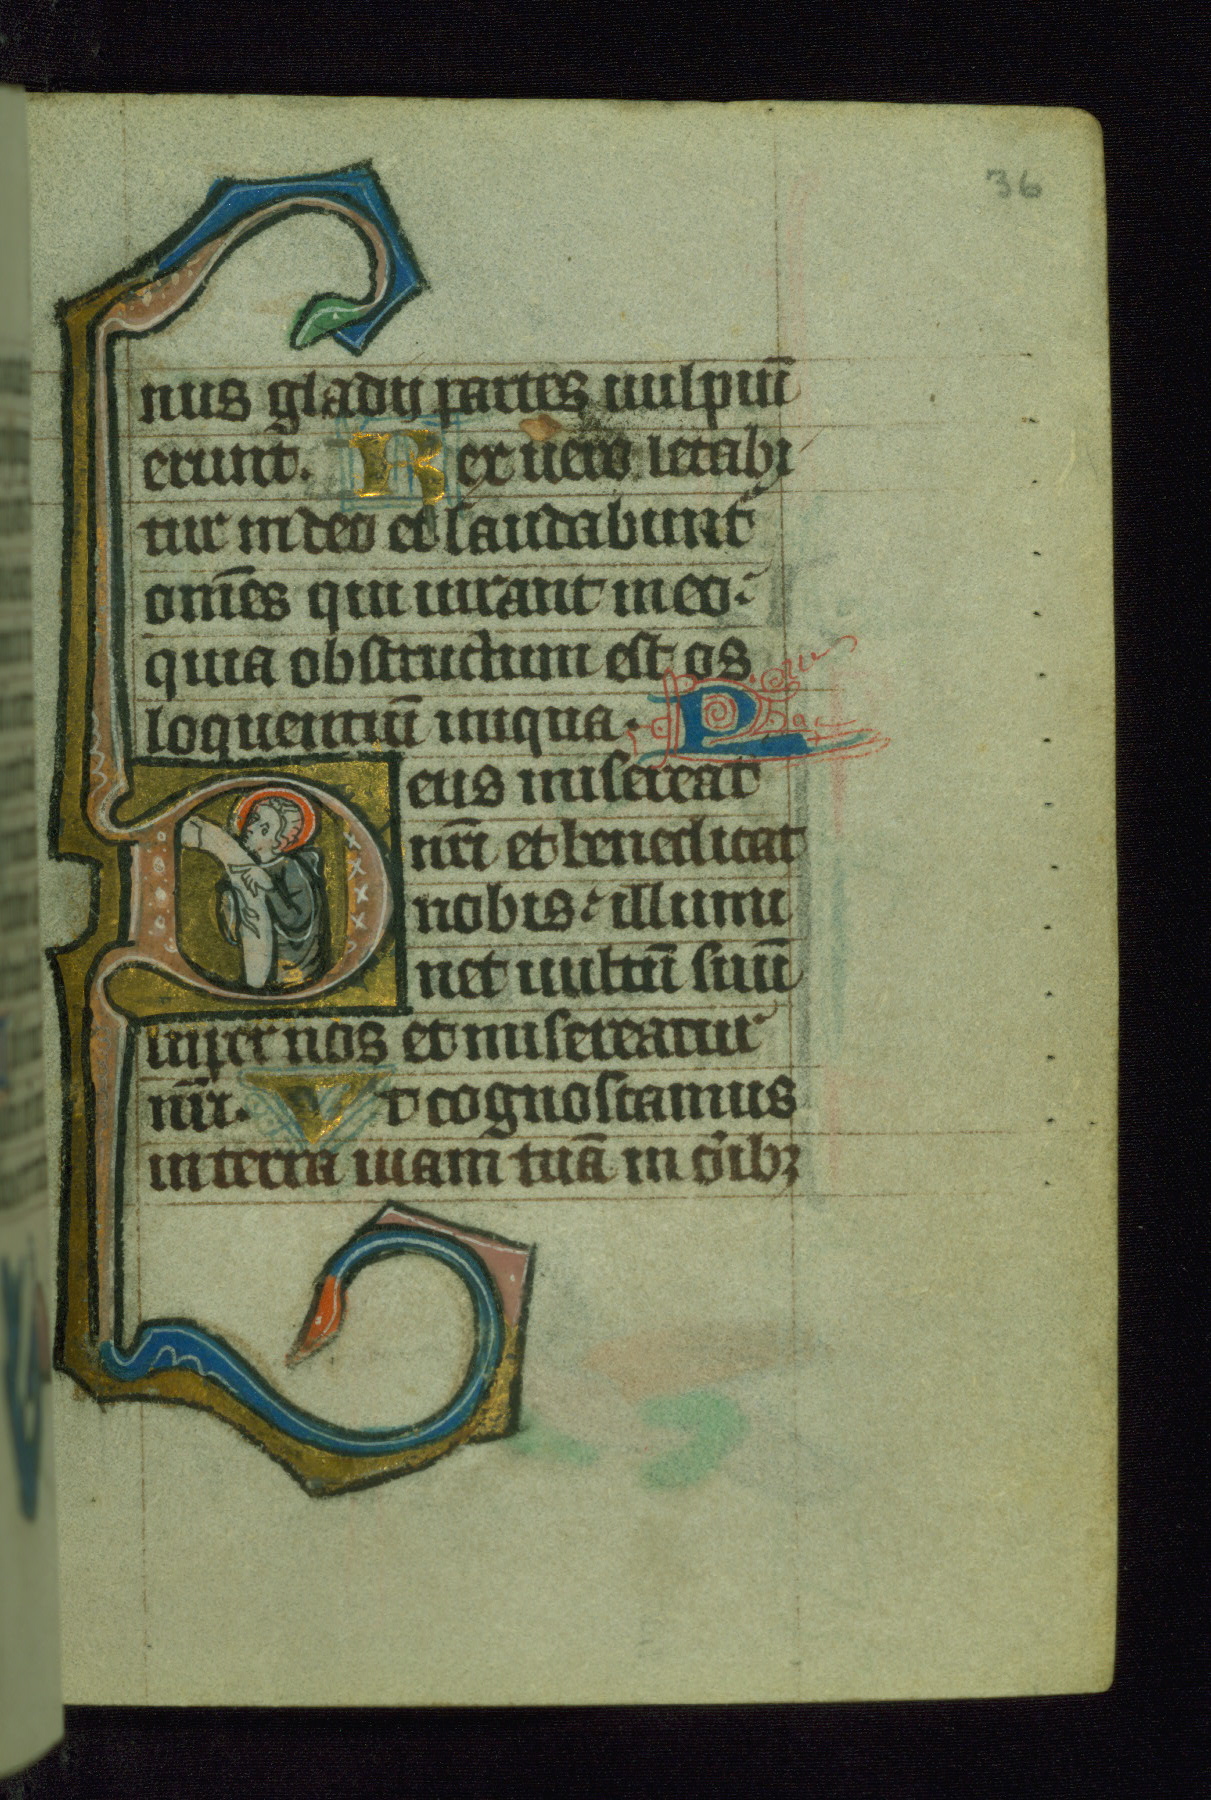 36
nus gladij partes uulpiū
erunt. Rex uero letabi
tur in deo et laudabunt᷑
om̄es qui iurant in eo
quia obstructum est os
loquentiū iniqua. P
Deus misereat᷑
nr̄i et benedicat
nobis illumi
net uultū suū
super nos et misereatur
nr̄i. Vt cognoscamus
in terra uiam tuā in om̄ibꝫ